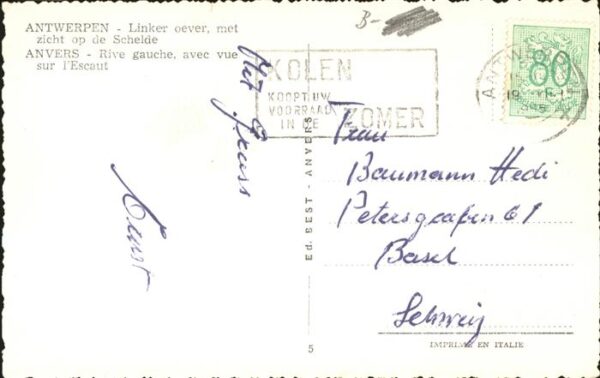 ANTWERPEN - Linker oever, met
zicht op de Schelde
ANVERS - Rive gauche, avec vue
sur l'Escaut
B-
KOLEN
KOOPT UW
VOORRAAD
IN DE
ZOMER
80
Gruss
Ernst
Ed. BEST - ANVERS
5
Frau
Baumann Hedi
Petersgraben 61
Basel
Schweiz
IMPRIMÉ EN ITALIE